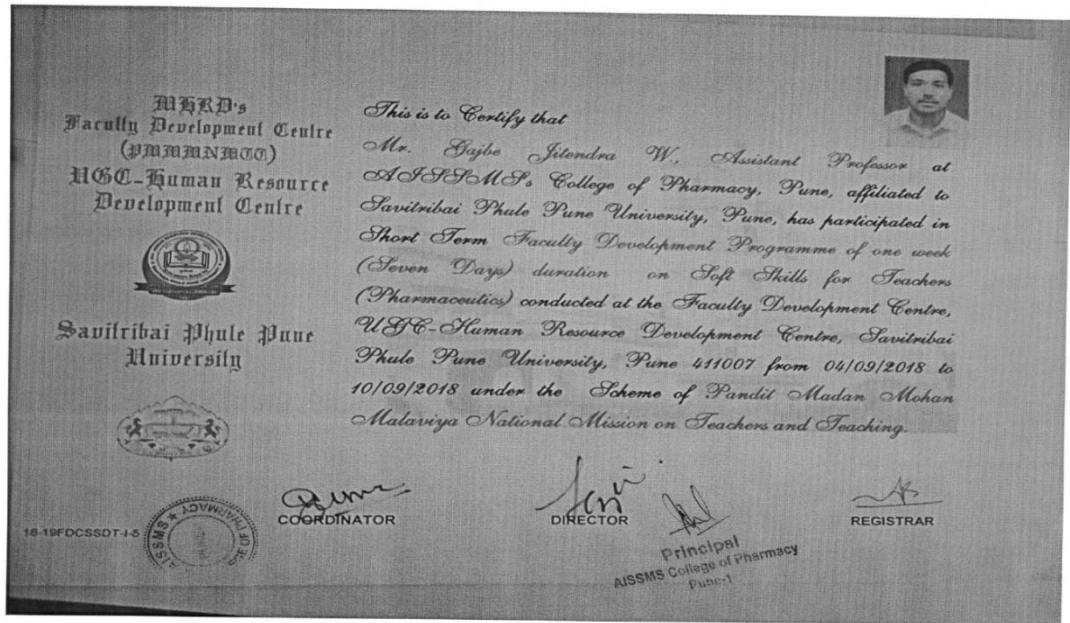 MHRD's
Faculty Development Centre
(PMMMNMTT)
UGC-Human Resource
Development Centre
Savitribai Phule Pune
University
This is to Certify that
Mr. Gajbe Jitendra W., Assistant Professor at
AISSMS, College of Pharmacy, Pune, affiliated to
Savitribai Phule Pune University, Pune, has participated in
Short Term Faculty Development Programme of one week
(Seven Days) duration on Soft Skills for Teachers
(Pharmaceutics) conducted at the Faculty Development Centre,
UGC-Human Resource Development Centre, Savitribai
Phule Pune University, Pune 411007 from 04/09/2018 to
10/09/2018 under the Scheme of Pandit Madan Mohan
Malaviya National Mission on Teachers and Teaching.
COORDINATOR
DIRECTOR
REGISTRAR
Principal
AISSMS College of Pharmacy
Pune-1
18-19FDCSSDT-I-5
AISSMS
OF PHARMACY